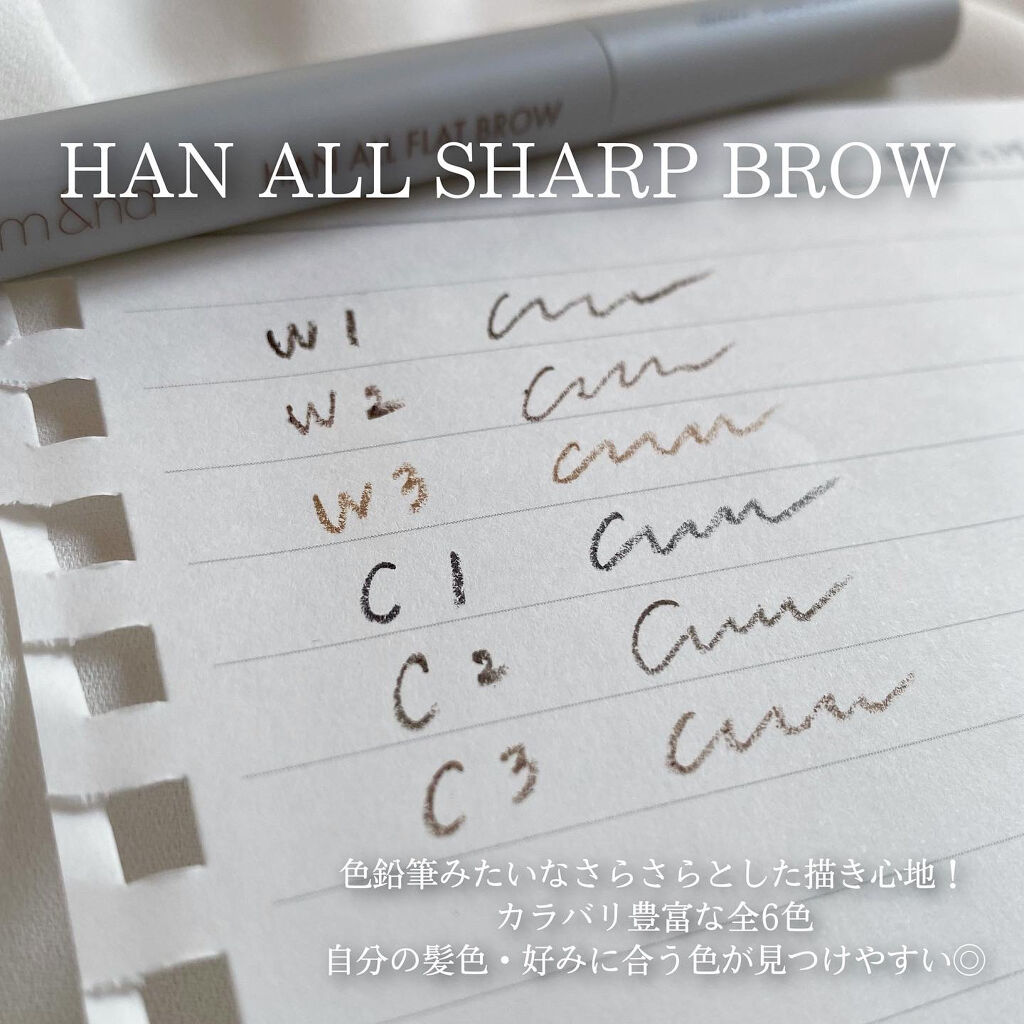 HAN ALL FLAT BROW
HAN ALL SHARP BROW
m&nd
W 1
W 2
W 3
C 1
C 2
C 3
色鉛筆みたいなさらさらとした描き心地！
カラバリ豊富な全6色
自分の髪色・好みに合う色が見つけやすい◎